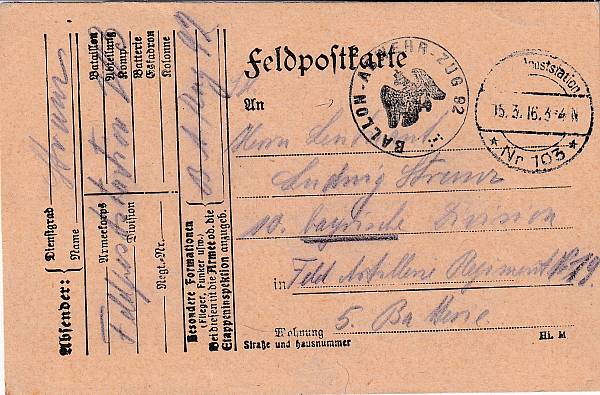 Feldpostkarte
BALLON-ABWEHR-ZUG 92
Poststation
15.3.16.3-4N
* Nr 103 *
An
Herrn Leutnant
Ludwig
10. bayrische Division
in Feld Artillerie Regiment No 19.
5. Batterie
Wohnung
Straße und Hausnummer
Hi. M
Absender:
Dienstgrad
Name
Armeekorps
Division
Feldpoststation 103
Regt.-Nr.
Bataillon
Abteilung
Komp.
Batterie
Eskadron
Kolonne
Besondere Formationen
(Flieger, Funker usw.)
Bei diesen ist die Armee od. die
Etappeninspektion anzugeb.
Zug 92